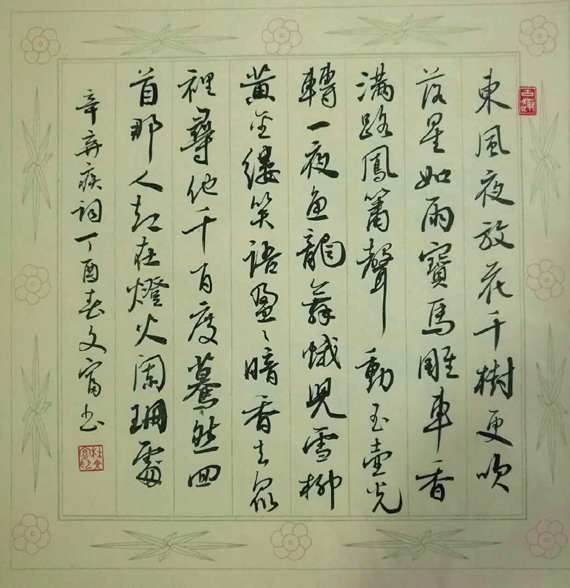 東風夜放花千樹更吹
落星如雨寶馬雕車香
滿路鳳簫聲動玉壺光
轉一夜魚龍舞蛾兒雪柳
黄金縷笑語盈〻暗香去衆
裡尋他千百度驀然回
首那人却在燈火闌珊處
辛弃疾詞丁酉春文富书